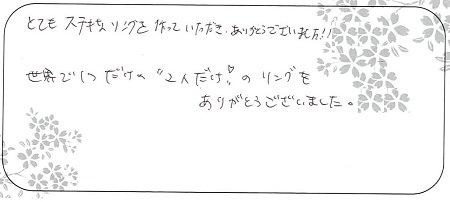 とても ステキなリングを 作っていただき、ありがとうございました!!
世界で1つだけの “2人だけ♡”のリングを
ありがとうございました。